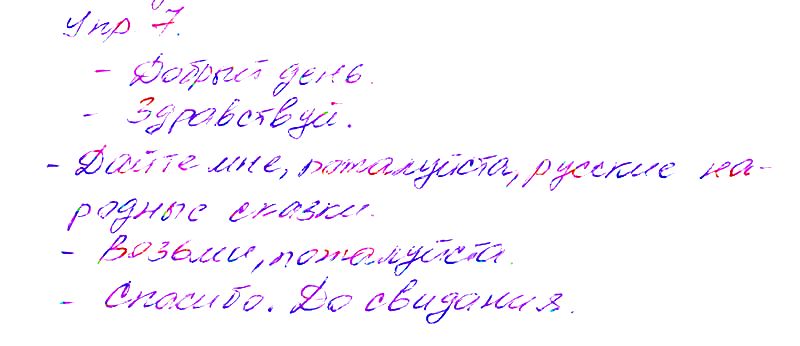 Упр 7.
- Добрый день.
- Здравствуй.
- Дайте мне, пожалуйста, русские на-
родные сказки.
- Возьми, пожалуйста.
- Спасибо. До свидания.